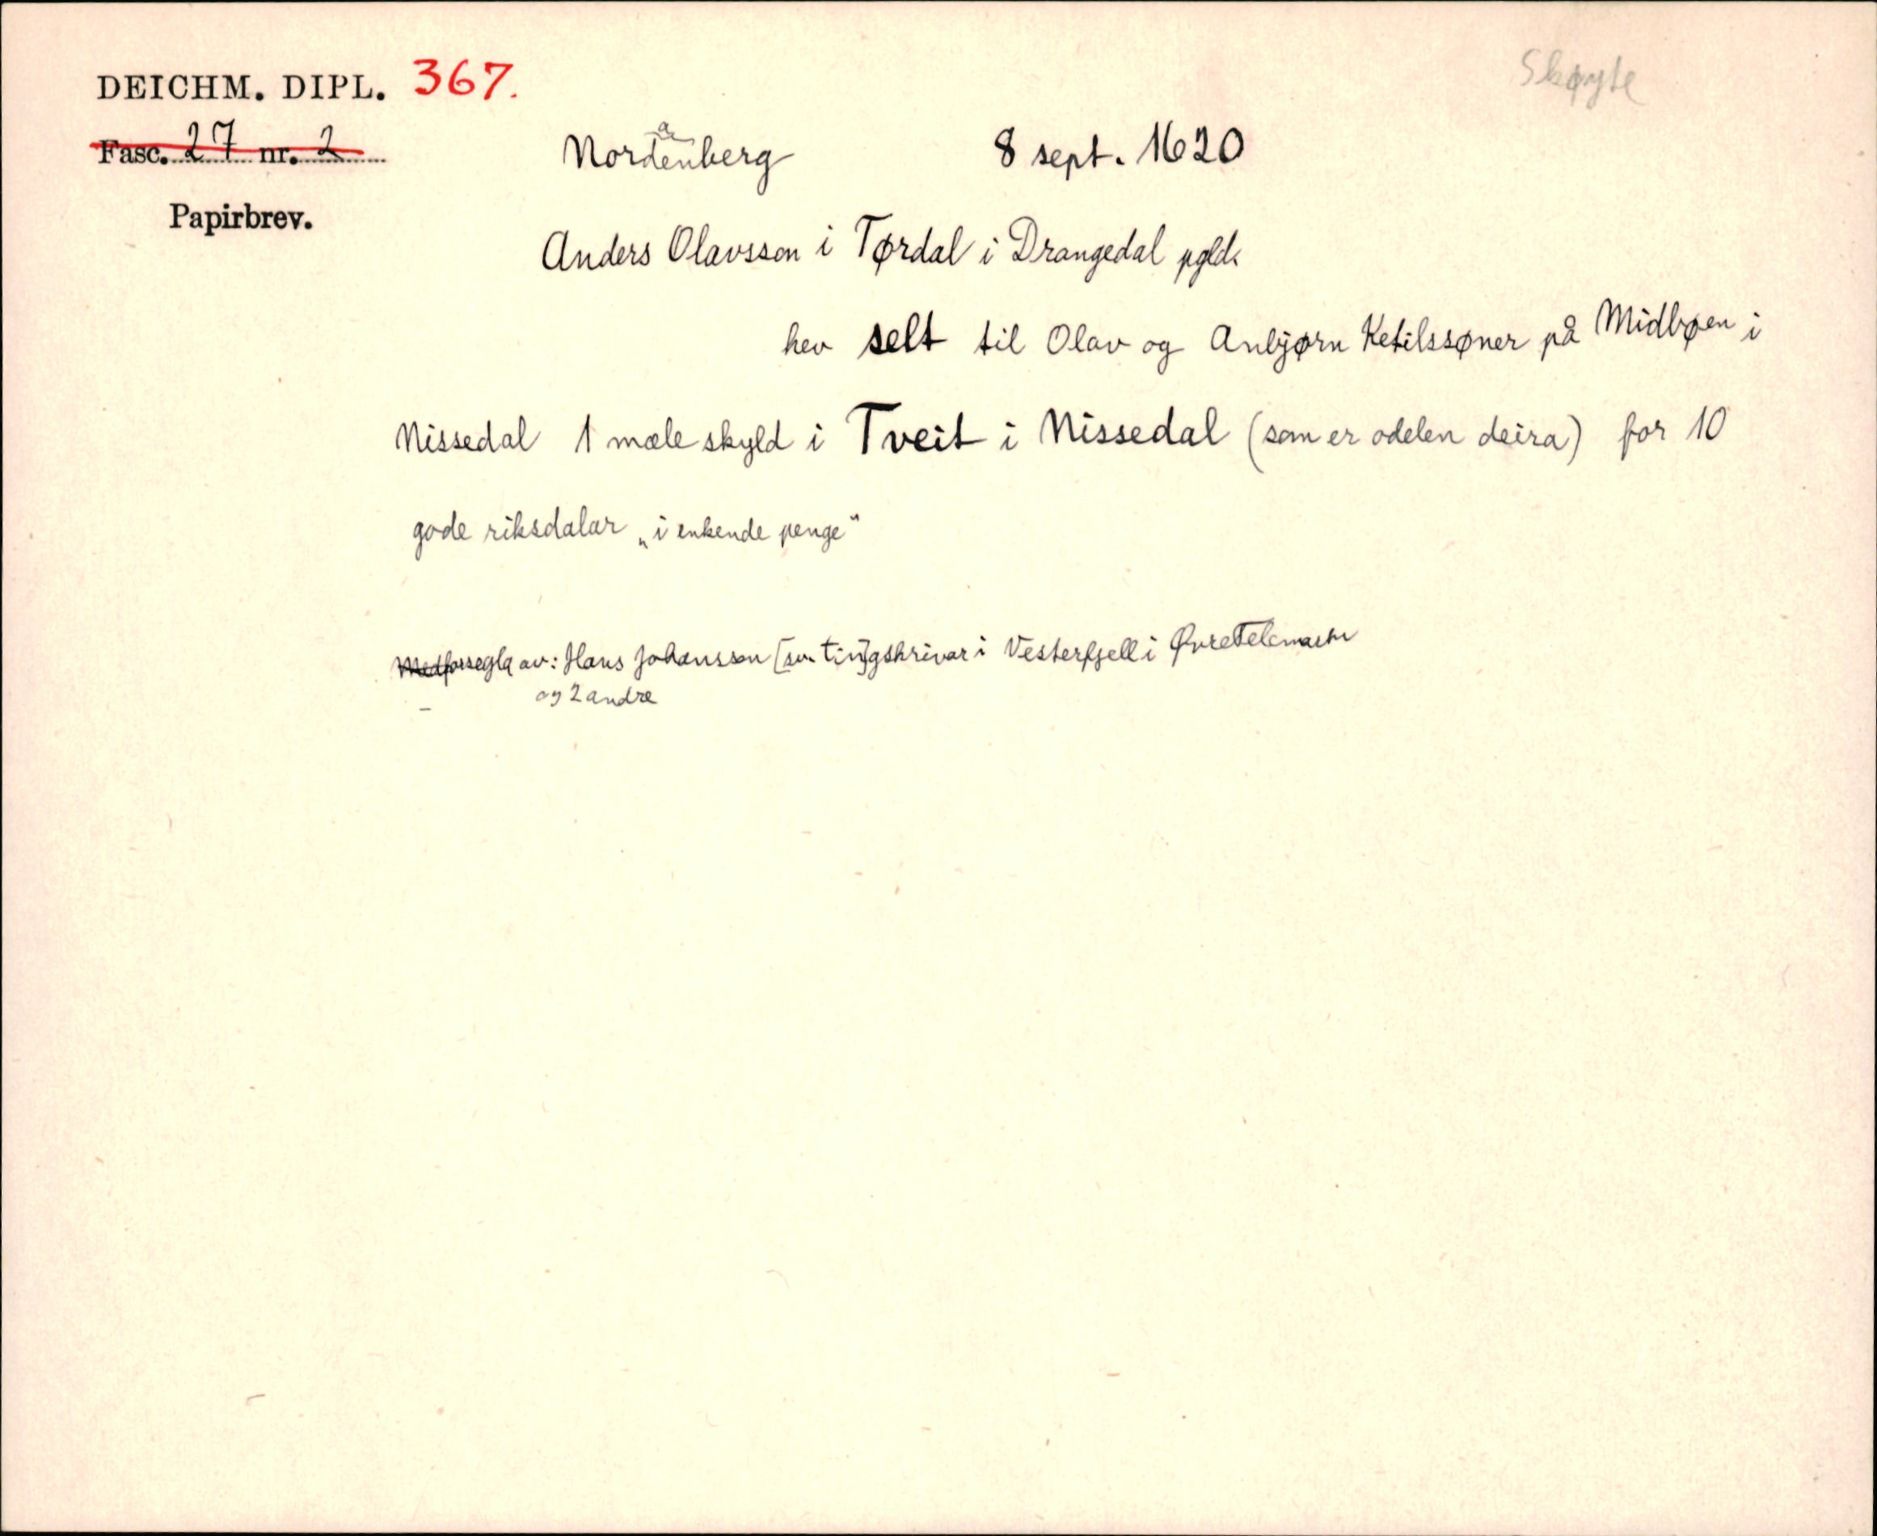 DEICHM. DIPL. 367.
Skøyte
Fasc. 27 nr. 2
Nordenberg 8 sept. 1620
Papirbrev.
Anders Olavsson i Tørdal i Drangedal pgld.
hev selt til Olav og Anbjørn Ketilssøner på Midbøen i
Nissedal 1 mæle skyld i Tveit i Nissedal (som er odelen deira) for 10
gode riksdalar „i enkende penge"
Medforsegla av: Hans Johansson [sv. tin]gskrivar i Vesterfjell i Øvre Telemark
og 2 andre